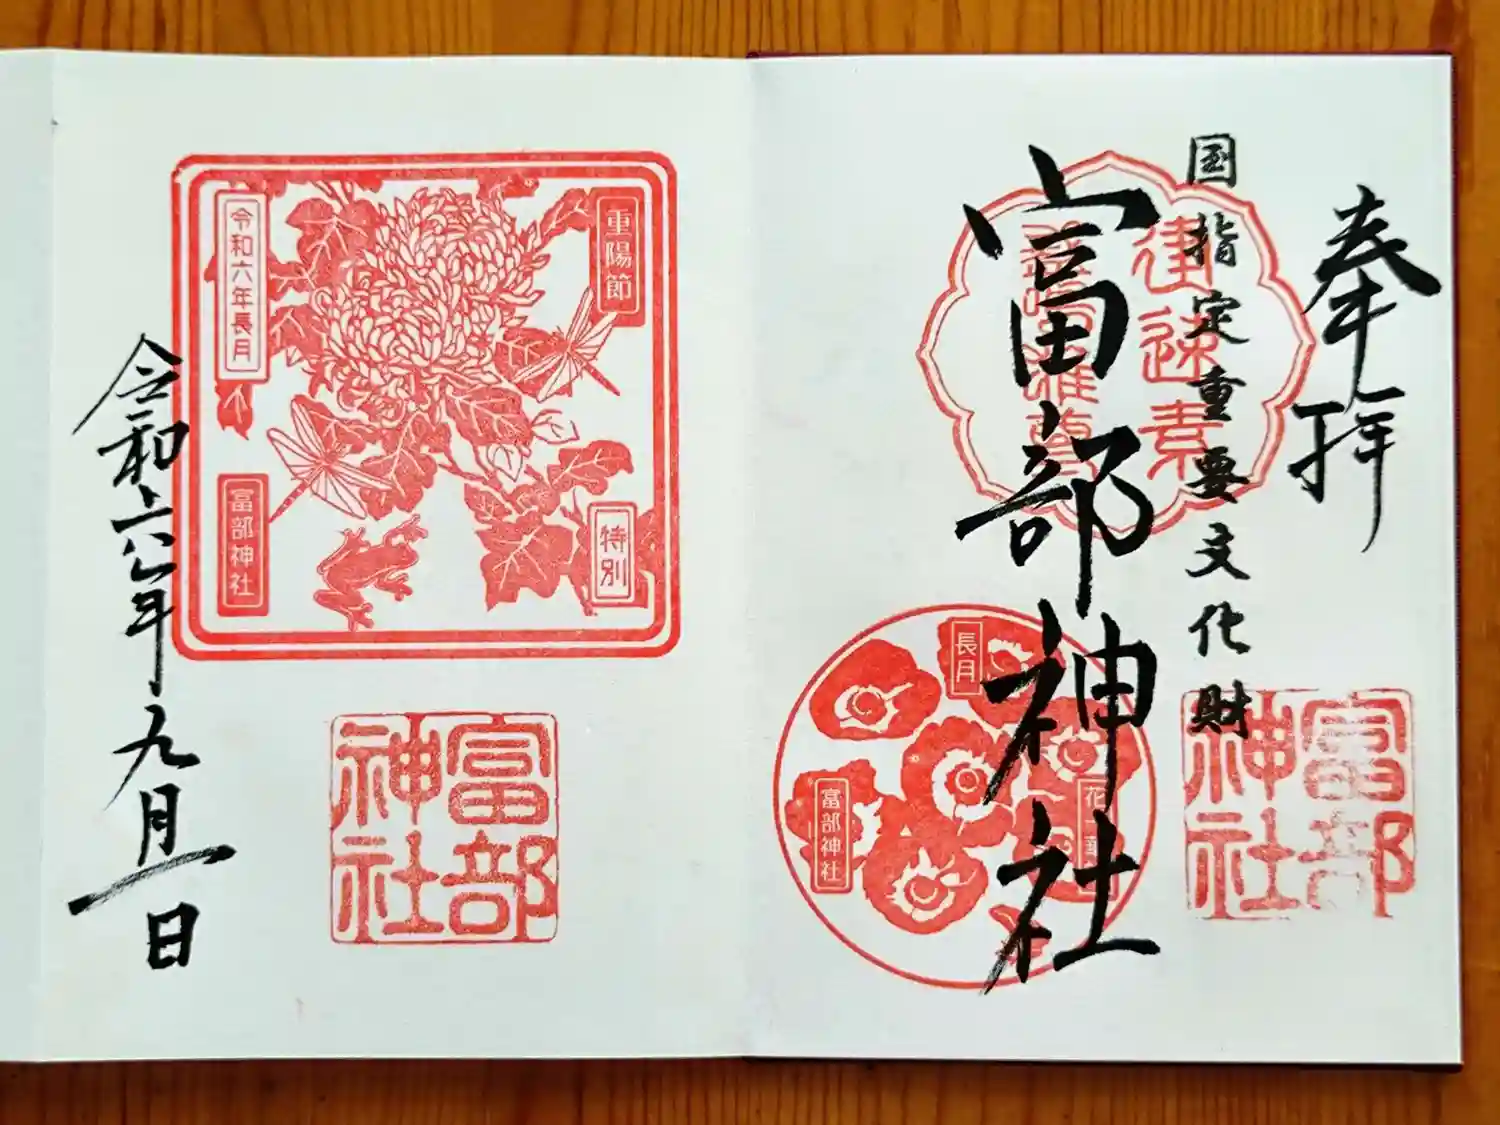 奉拝
国指定重要文化財
速素
富部神社
富部
神社
長月
富部神社
重陽節
特別
令和六年長月
富部神社
富部
神社
令和六年九月一日